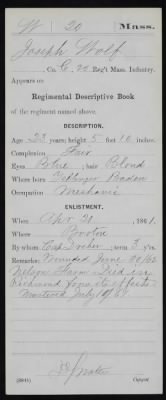 W 20 Mass.
Joseph Wolf
Co. G, 20 Reg't Mass. Infantry.
Appears on
Regimental Descriptive Book
of the regiment named above.
DESCRIPTION.
Age 23 years; height 5 feet 10 inches.
Complexion Fair
Eyes Blue; hair Blond
Where born Baden
Occupation Mechanic
ENLISTMENT.
When 1861.
Where Boston
By whom Cap; term 3 y'rs.
Remarks: Wounded June 30/62
Nelson Farm Died in
Richmond from its effects
Mustered July 18/61
Copyist.